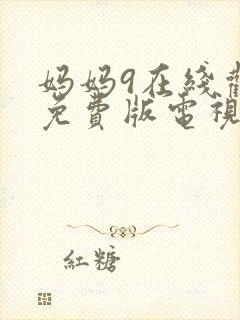 妈妈9在綫觀
免費版電視
紅糖